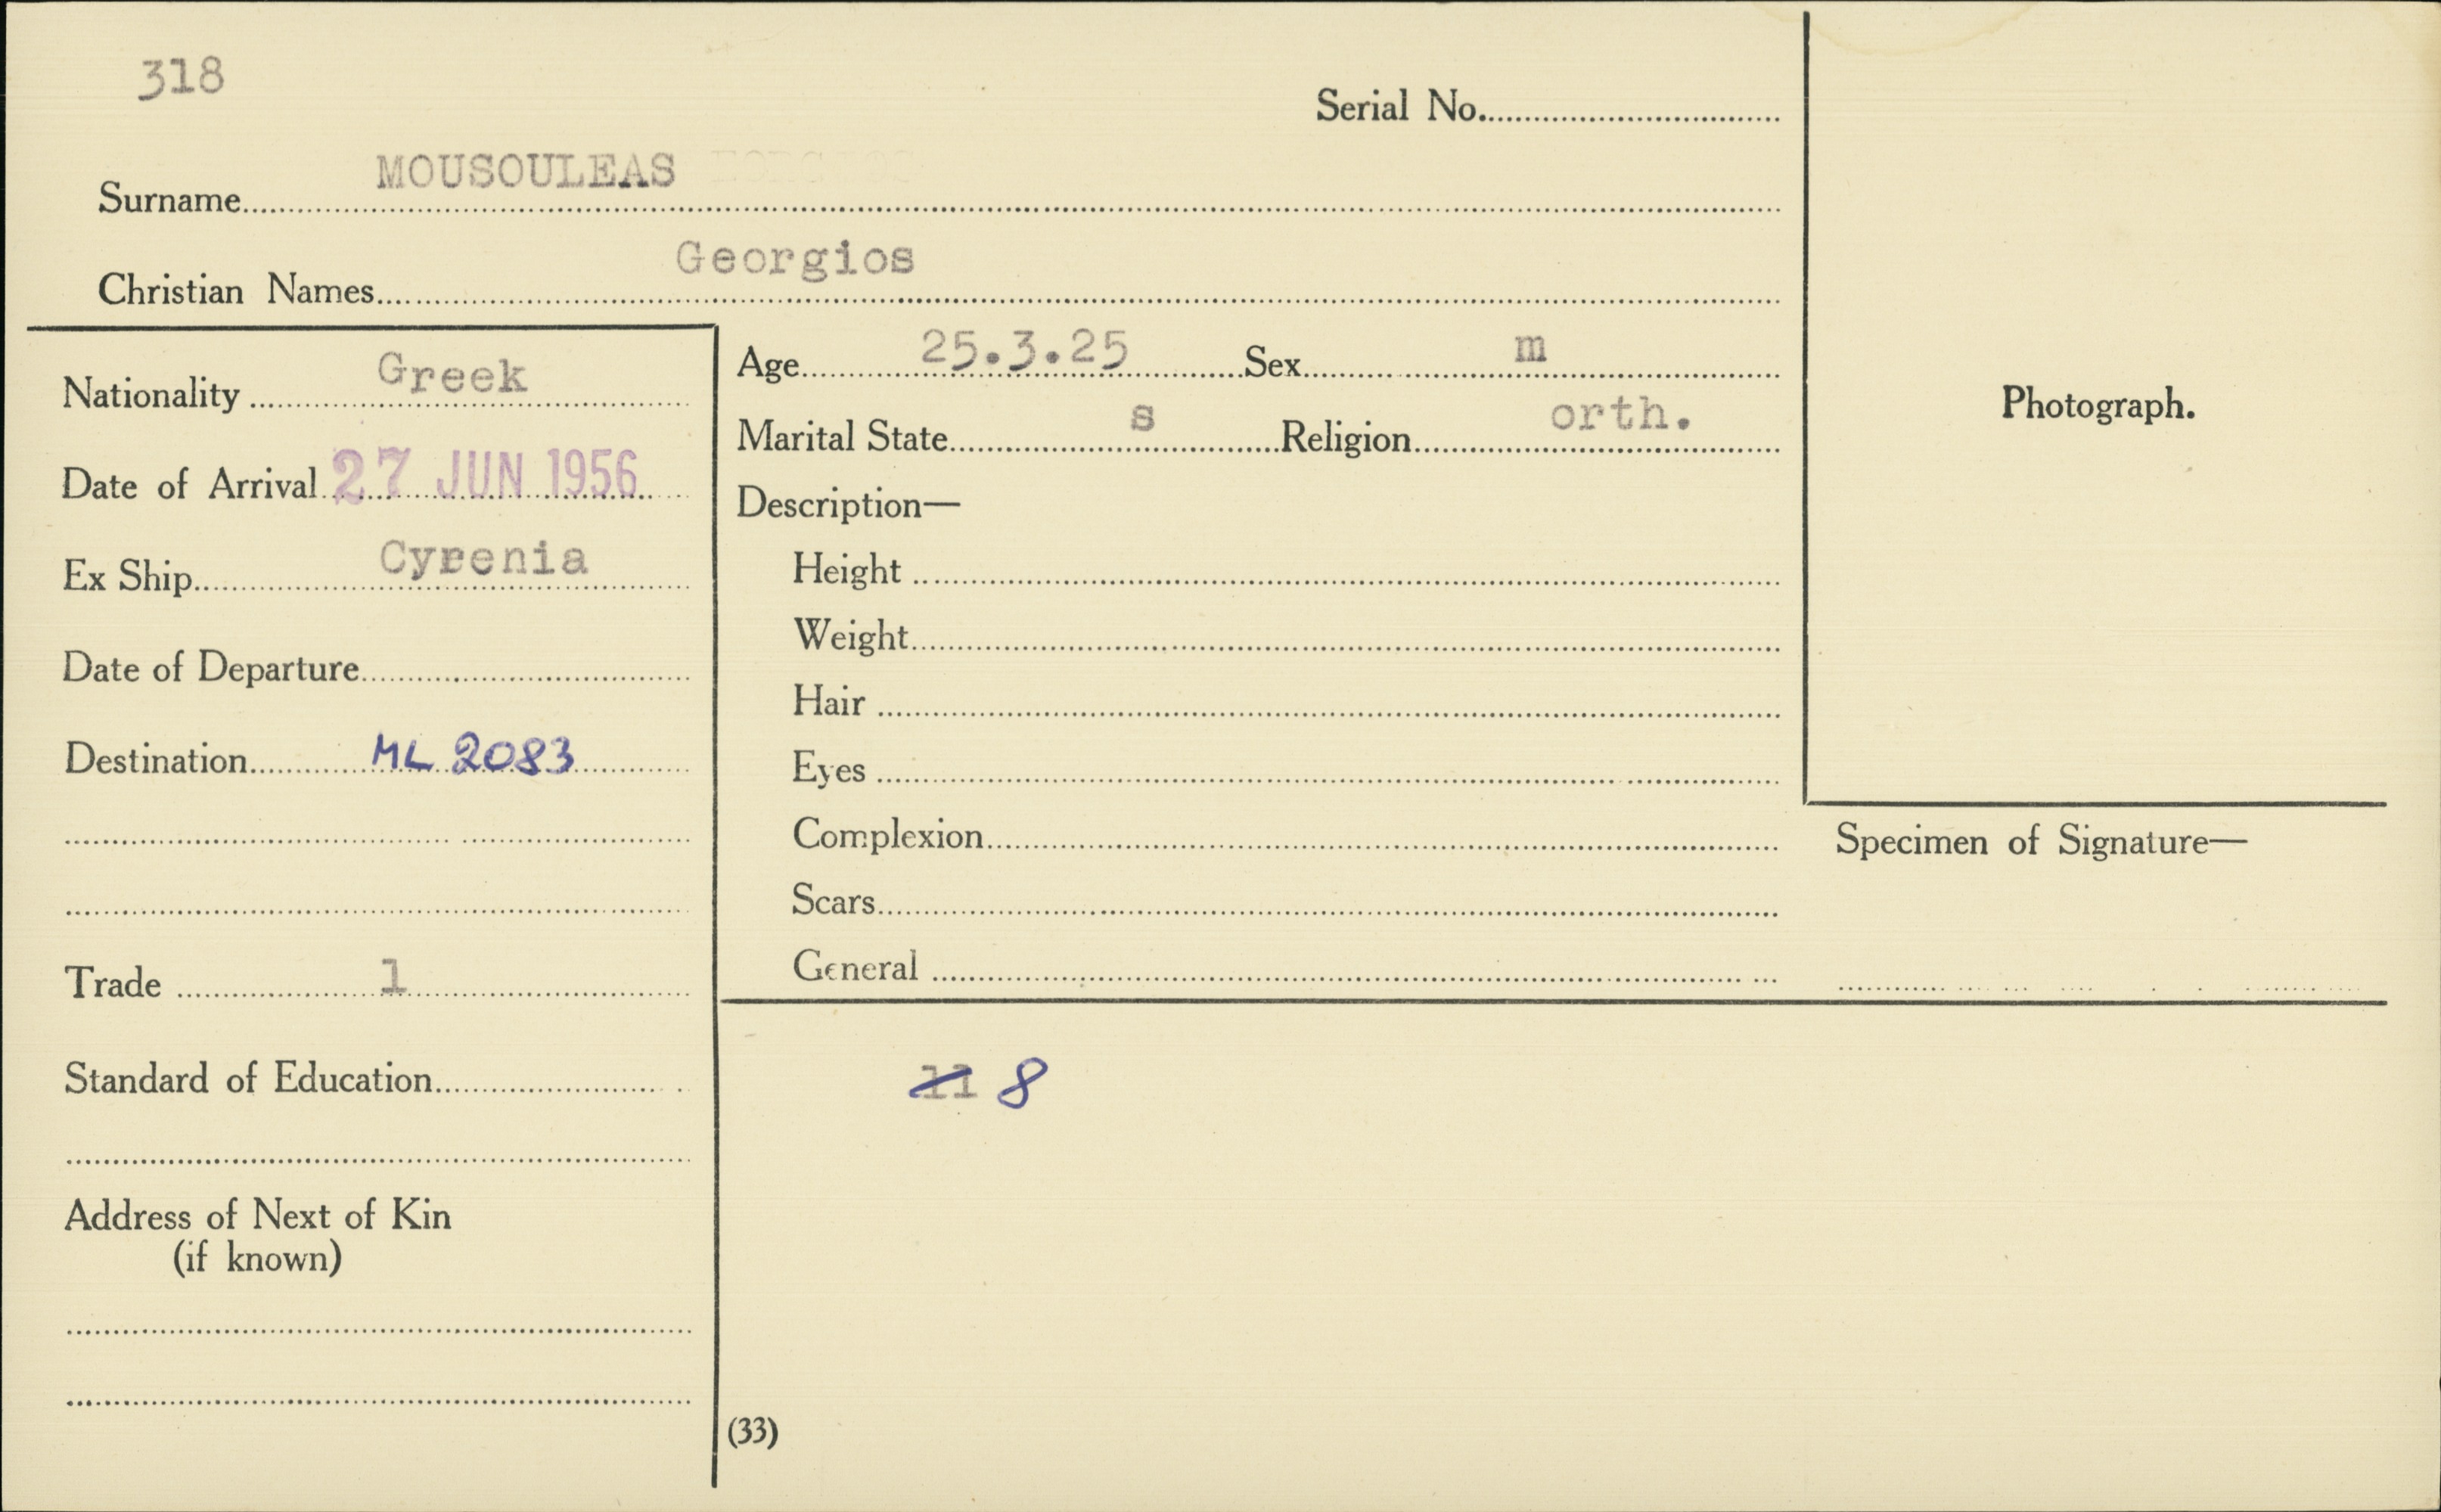 318
Serial No.
Surname MOUSOULEAS
Christian Names Georgios
Nationality Greek
Date of Arrival 27 JUN 1956
Ex Ship Cyrenia
Date of Departure
Destination ML 2083
Trade 1
Standard of Education
Address of Next of Kin
(if known)
Age 25.3.25 Sex m
Marital State s Religion orth.
Description—
Height
Weight
Hair
Eyes
Complexion
Scars
General
11 8
(33)
Photograph.
Specimen of Signature—